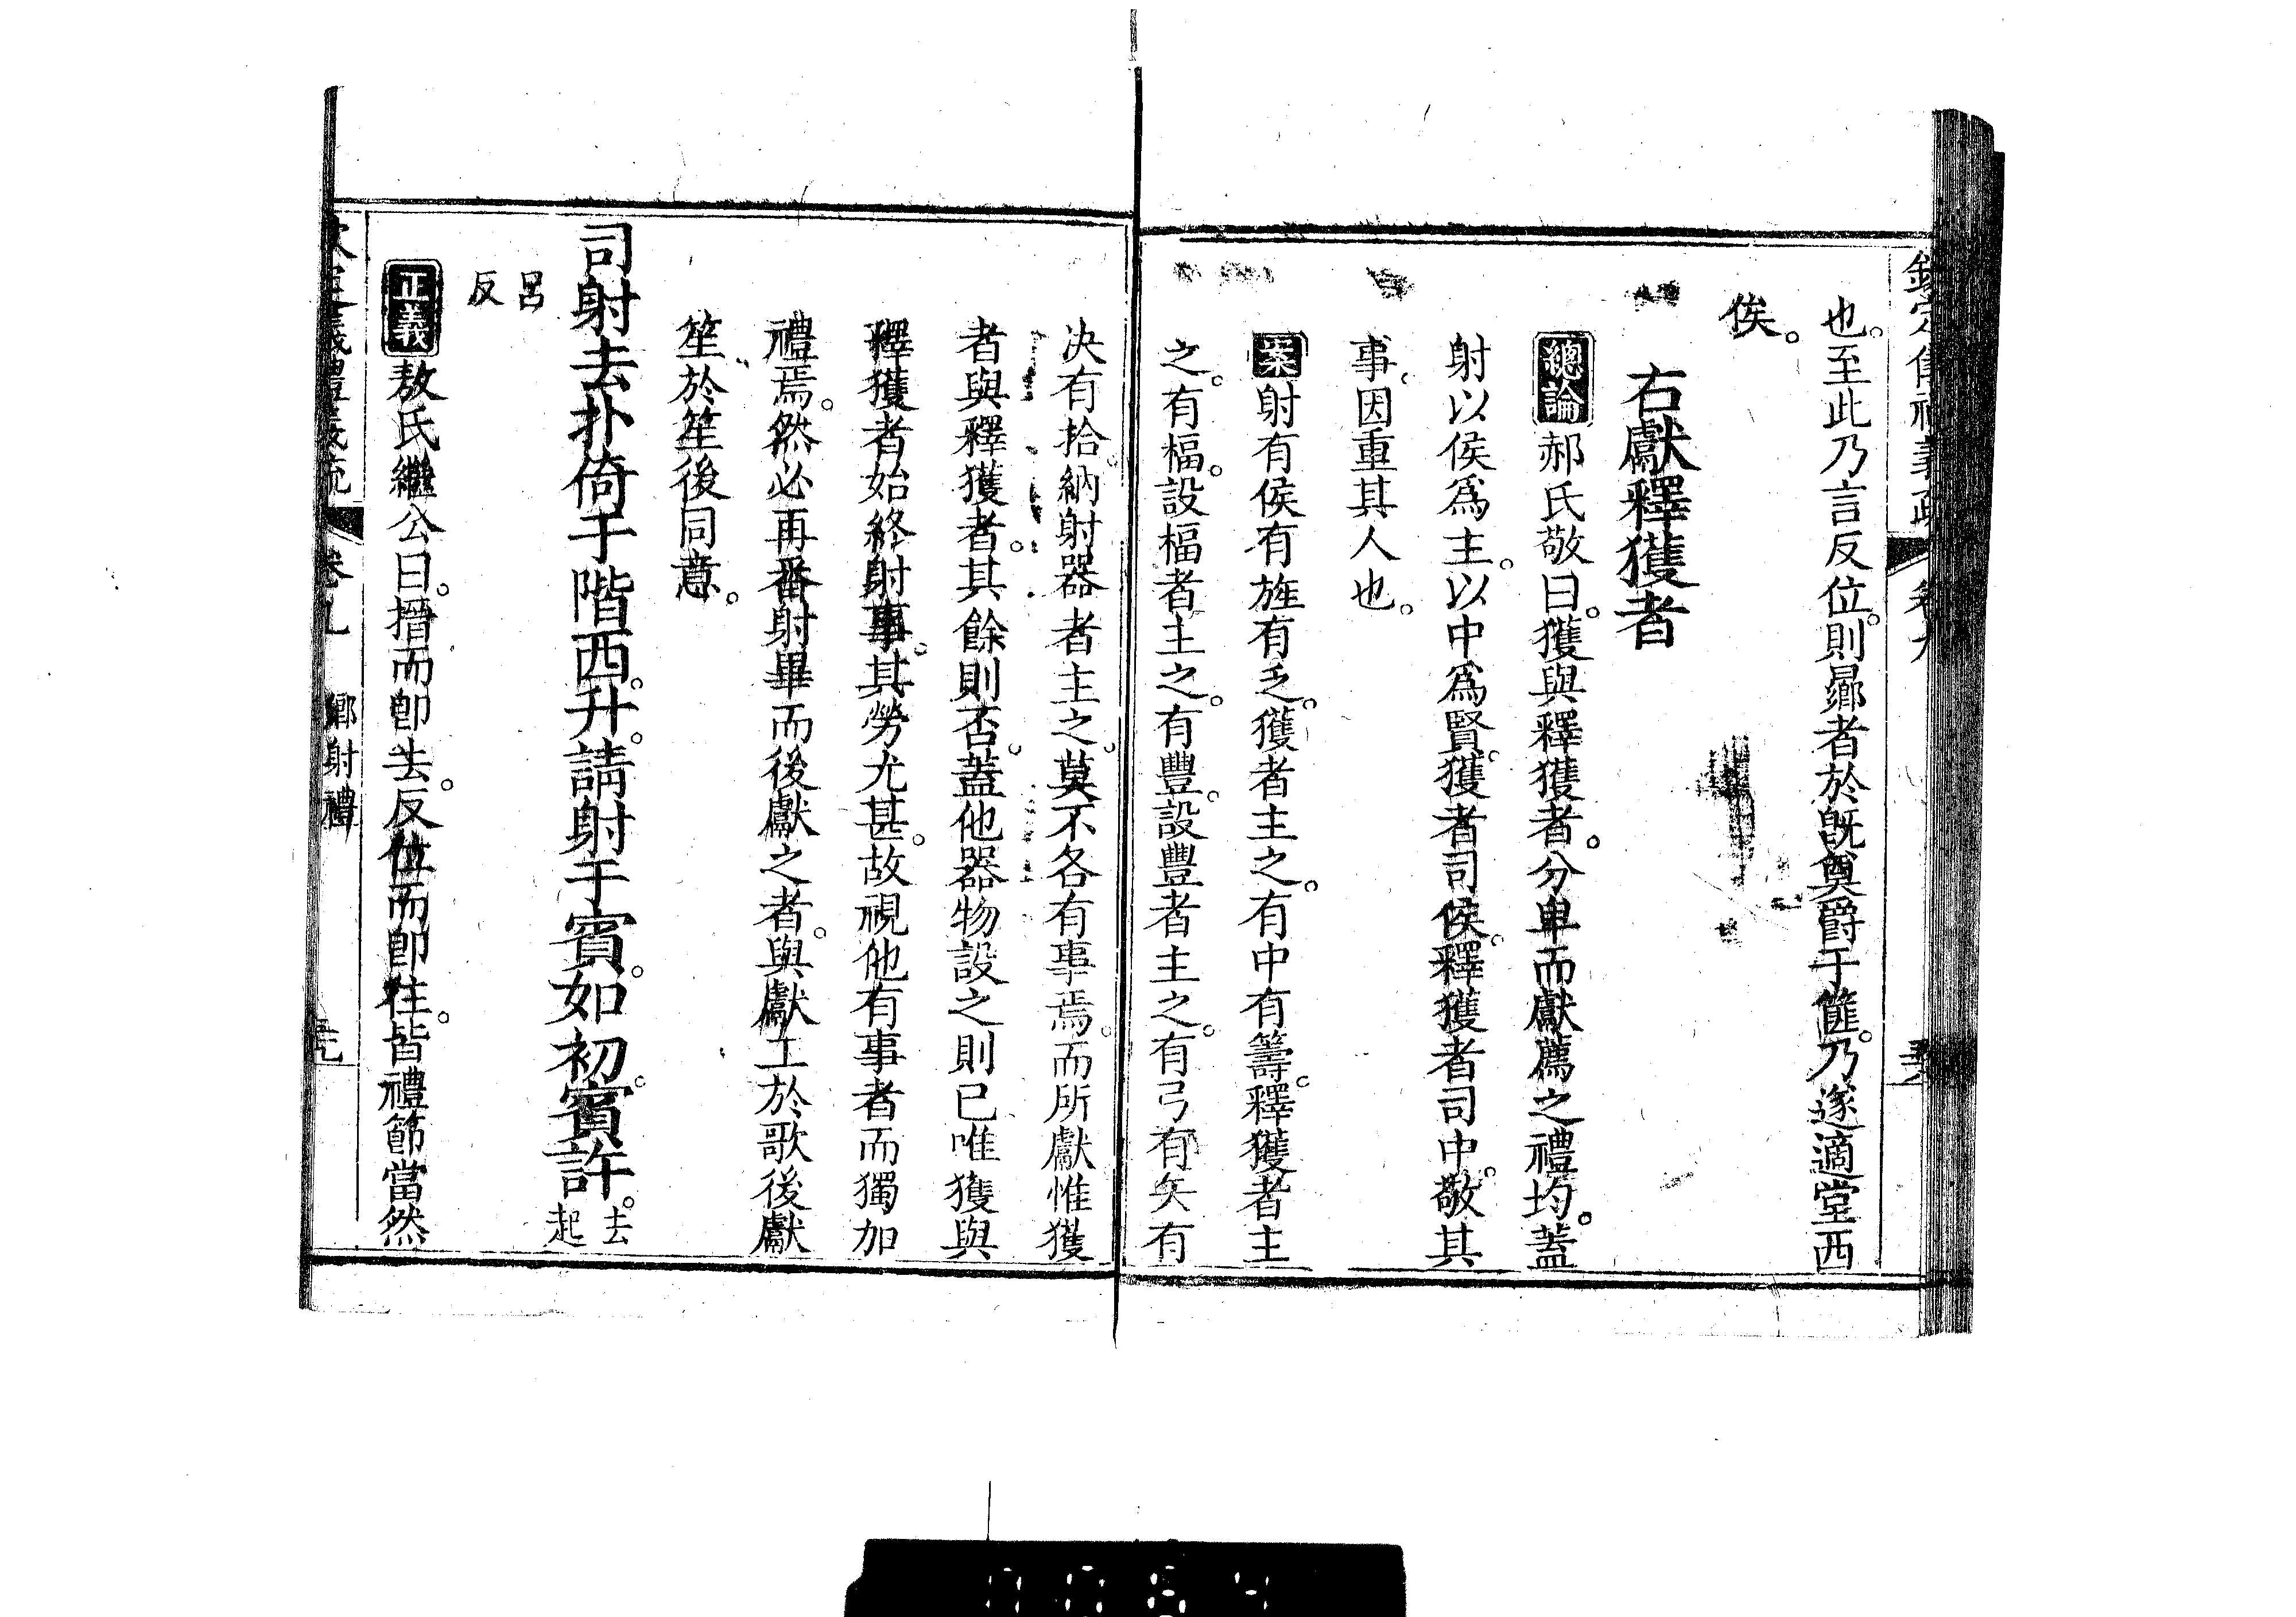 欽定儀禮義疏 卷九
也。至此乃言反位。則曏者於旣奠爵于篚。乃遂適堂西
俟。
右獻釋獲者
總論郝氏敬曰。獲與釋獲者。分卑而獻薦之禮均。蓋
射以侯爲主。以中爲賢。獲者司侯。釋獲者司中。敬其
事。因重其人也。
案射有侯有旌有乏。獲者主之。有中有籌。釋獲者主
之。有楅。設楅者主之。有豐。設豐者主之。有弓有矢有
決有拾。納射器者主之。莫不各有事焉。而所獻惟獲
者與釋獲者。其餘則否。蓋他器物設之則已唯獲與
釋獲者始終射事。其勞尤甚。故視他有事者而獨加
禮焉。然必再番射畢而後獻之者。與獻工於歌後獻
笙於笙後同意。
司射去扑倚于階西。升。請射于賓。如初。賓許。去起
呂反
正義敖氏繼公曰。搢而卽去。反位而卽往。皆禮節當然
欽定儀禮義疏 卷九 鄉射禮